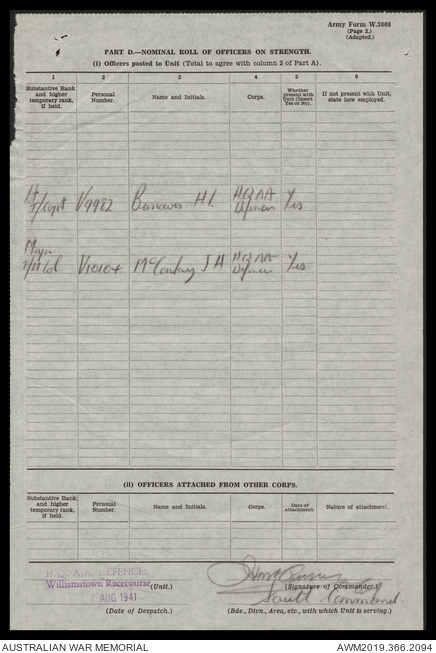 Army Form W.3008
(Page 2.)
(Adapted.)
PART D.—NOMINAL ROLL OF OFFICERS ON STRENGTH.
(i) Officers posted to Unit (Total to agree with column 2 of Part A).
1 2 3 4 5 6
Substantive Rank and higher temporary rank, if held. Personal Number. Name and Initials. Corps. Whether present with Unit (Insert Yes or No). If not present with Unit, state how employed.
Lt
T/Capt V9982 Burrowes H L HQ AA Defences Yes
Major
T/Lt Col HQ AA Defences Yes
(ii) OFFICERS ATTACHED FROM OTHER CORPS.
Substantive Rank and higher temporary rank, if held. Personal Number. Name and Initials. Corps. Date of attachment. Nature of attachment.
H.Q. A.A. DEFENCES
Williamstown Racecourse (Unit.)
7 AUG 1941
(Date of Despatch.)
(Signature of Commander.)
South Command
(Bde., Divn., Area, etc., with which Unit is serving.)
AUSTRALIAN WAR MEMORIAL
AWM2019.366.2094